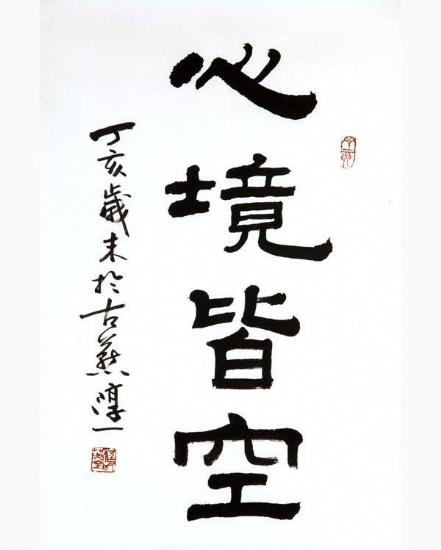 心境皆空
丁亥歲末於古燕淳一